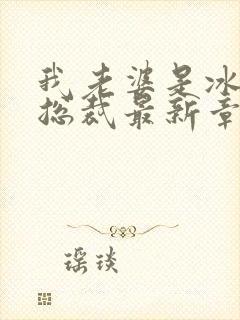 我老婆是冰
总裁最新章
瑶琰